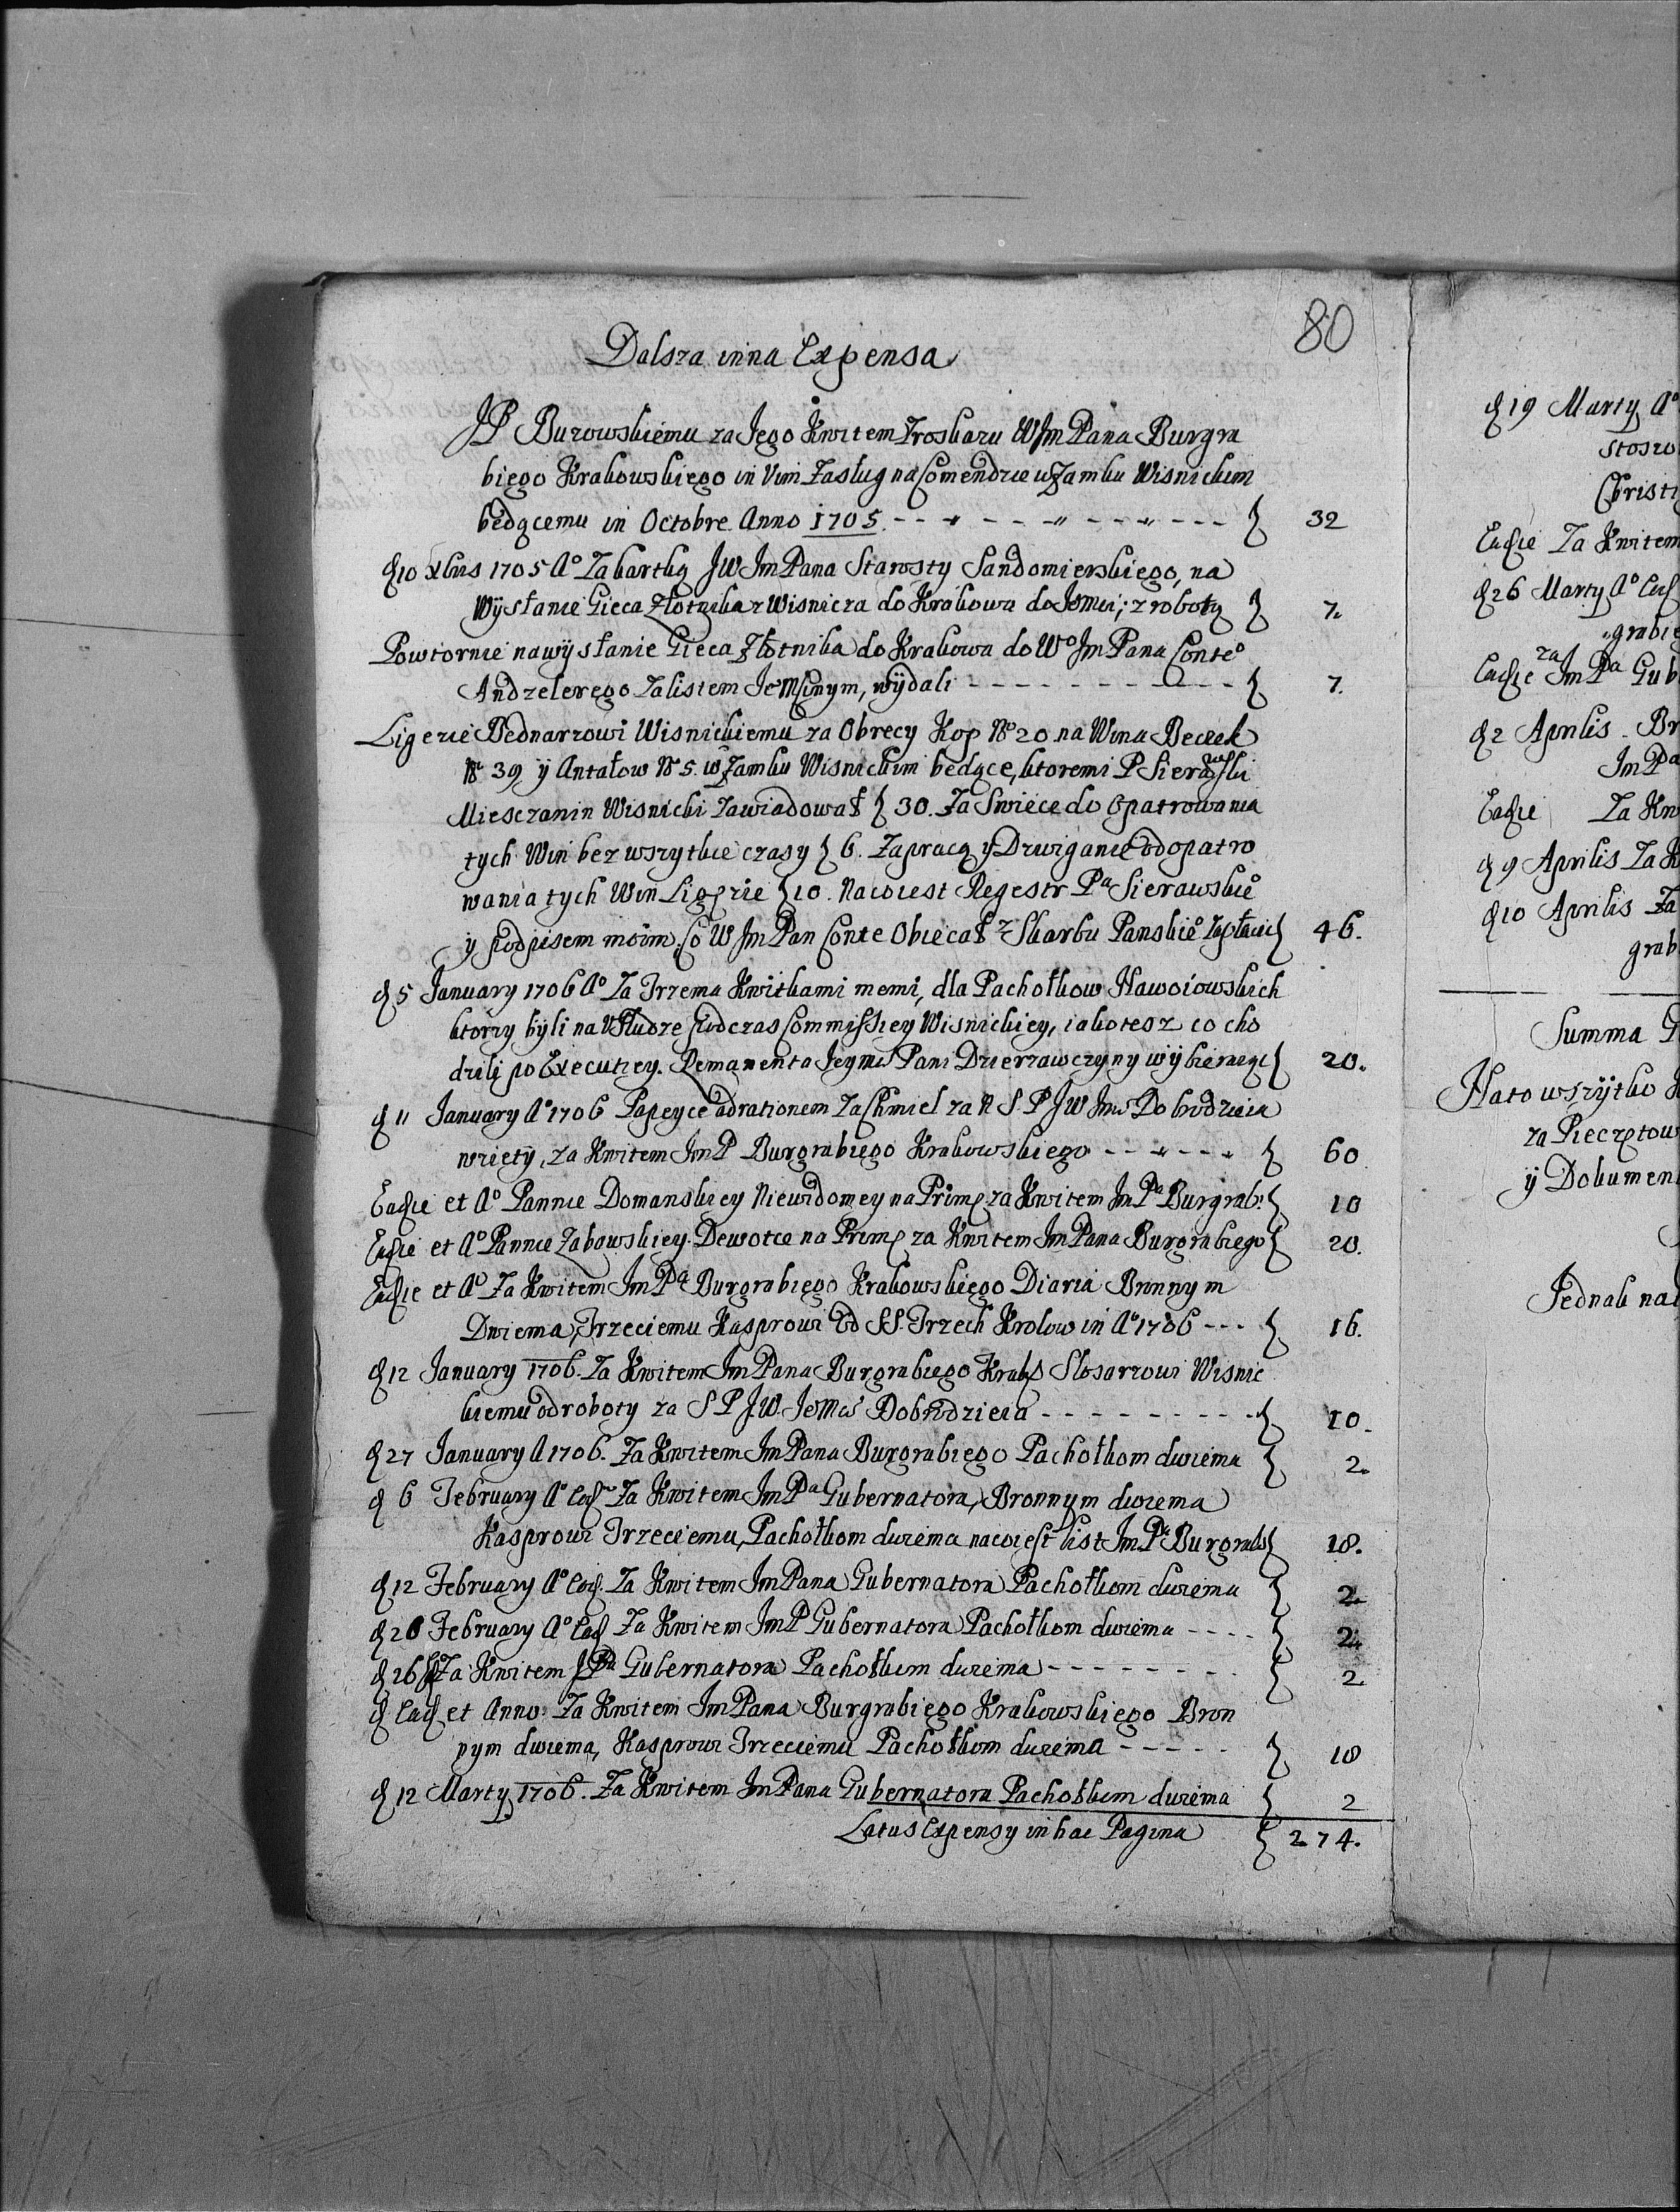 80
Dalsza inna Expensa
JP Burowskiemu za Jego Kwitem Zroskazu WJm Pana Burgra
biego Krakowskiego in Vim Zasług na Comendzie w Zamku Wisnickim
będącemu in Octobre Anno 1705. 32
d 10 Xbris 1705 Aº Za kartką JW Jm Pana Starosty Sandomierskiego, na
Wysłanie Gieca Złotnika z Wisnicza do Krakowa do Jmci; z robotą 7.
Powtornie na wysłanie Gieca Złotnika do Krakowa do Wº Jm Pana Conteº
Andzelerego Za listem Jemcinym, wydali 7.
Ligezie Bednarzowi Wisnickiemu za Obręcy Kop Nº 20 na Wina Beczek
Nº 39 ÿ Antałow Nº 5. w Zamku Wisnickim będące, ktoremi P Sierawski
Miesczanin Wisnicki Zawiadował 30. Za Swiece do Opatrowania
tych Win bez wszytkie czasy 6. Za pracą y Dzwiganie od opatro
wania tych Win Ligęzie 10. Na co iest Regestr Pª Sierawskieº
ÿ podpisem moim. Co W Jm Pan Conte Obiecał z Skarbu Panskieº Zapłacić 46.
d 5 January 1706 Aº Za Trzema Kwitkami memi, dla Pachołkow Nawoiowskich
ktorzy byli na Słudze podczas Commissiey Wisnickiey, iako tesz co cho
dzili po Executiey. Remanenta Jeymci Pani Dzierzawczyny wybieraiąc 20.
d 11 January Aº 1706 Papeyce ad rationem Za Chmiel za N S. P JW Jmci Dobrodzieia
wzięty, za Kwitem Jm P Burgrabiego Krakowskiego 60
Eadie et Aº Pannie Domanskiey Niewidomey na Prim za Kwitem Jm Pª Burgrab: 10
Eadie et Aº Pannie Zabowskiey Dewotce na Prim za Kwitem Jm Pana Burgrabiego 20.
Eadie et Aº Za Kwitem Jm Pª Burgrabiego Krakowskiego Diaria Bronnym
Dwiema, Trzeciemu Kasprowi Od SS. Trzech Krolow in Aº 1706 16.
d 12 January 1706. Za Kwitem Jm Pana Burgrabiego Krak Slosarzowi Wisnic
kiemu od roboty za S P J.W. Jemci Dobrodzieia 10.
d 27 January A 1706. Za Kwitem Jm Pana Burgrabiego Pachołkom dwiema 2.
d 6 February Aº Eod Za Kwitem Jm Pª Gubernatora, Bronnym dwiema
Kasprowi Trzeciemu, Pachołkom dwiema na co iest list Jm Pª Burgrab 18.
d 12 February Aº Eod. Za Kwitem Jm Pana Gubernatora Pachołkom dwiema 2.
d 20 February Aº Eod Za Kwitem Jm P Gubernatora Pachołkom dwiema 2.
d 26 Za Kwitem J Pª Gubernatora Pachołkom dwiema 2.
d Ead et Anno: Za Kwitem Jm Pana Burgrabiego Krakowskiego Bron
nym dwiema, Kasprowi Trzeciemu Pachołkom dwiema 18
d 12 Marty 1706. Za Kwitem Jm Pana Gubernatora Pachołkom dwiema 2
Latus Expensy in hac Pagina 274.
d 19 Marty Aº
stoso
Christi
Eadie Za Kwitem
d 26 Marty Aº Eod
grabie
Eadie za Jm Pª Gub
d 2 Aprilis Br
Jm Pª
Eadie Za Kw
d 9 Aprilis Za K
d 10 Aprilis Za
grab
Summa
Na to wszytko
za Pieczętow
ÿ Dokumen
Jednak na